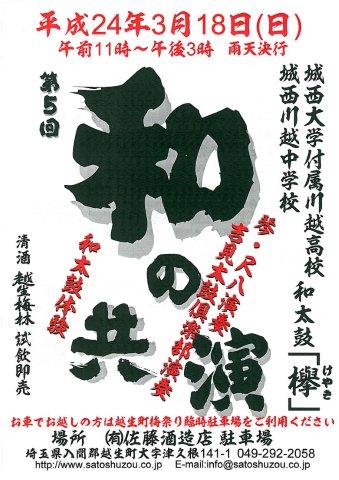 平成24年3月18日(日)
午前11時~午後3時　雨天決行
第5回
和の共演
城西大学付属川越高校
城西川越中学校
和太鼓「欅」
けやき
琴・尺八演奏
吉見太鼓倶楽部演奏
和太鼓体験
清酒 越生梅林 試飲即売
お車でお越しの方は越生町梅祭り臨時駐車場をご利用ください
場所　㈲佐藤酒造店 駐車場
埼玉県入間郡越生町大字津久根141-1　049-292-2058
http://www.satoshuzou.co.jp　E-mail:info@satoshuzou.co.jp